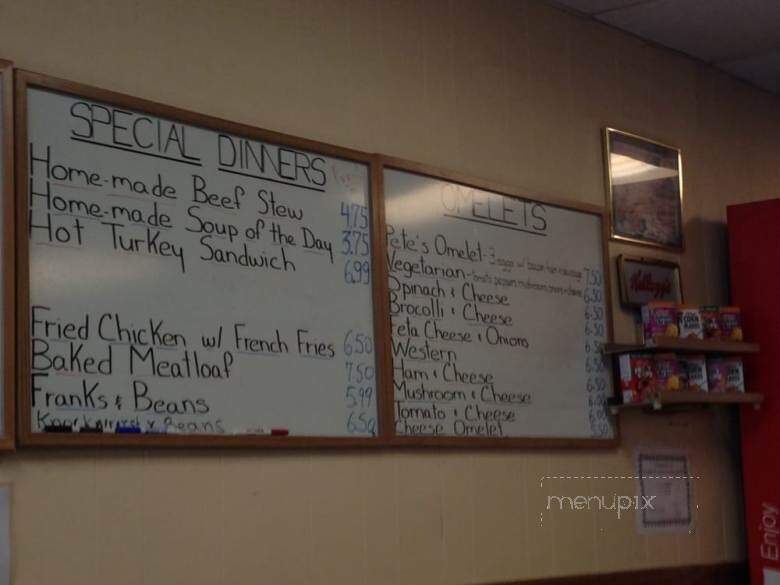 SPECIAL DINNERS
Home-made Beef Stew 4.75
Home-made Soup of the Day 3.75
Hot Turkey Sandwich 6.99
Fried Chicken w/ French Fries 6.50
Baked Meatloaf 7.50
Franks & Beans 5.99
Knockwurst & Beans 6.50
OMELETS
Pete's Omelet - 3 eggs w/ bacon ham & sausage 7.50
Vegetarian - tomato peppers mushrooms onions & cheese 6.50
Spinach & Cheese 6.50
Brocolli & Cheese 6.50
Feta Cheese & Onions 6.50
Western 6.50
Ham & Cheese 6.50
Mushroom & Cheese 6.00
Tomato & Cheese 6.00
Cheese Omelet 5.50
Kellogg's
Enjoy
menupix